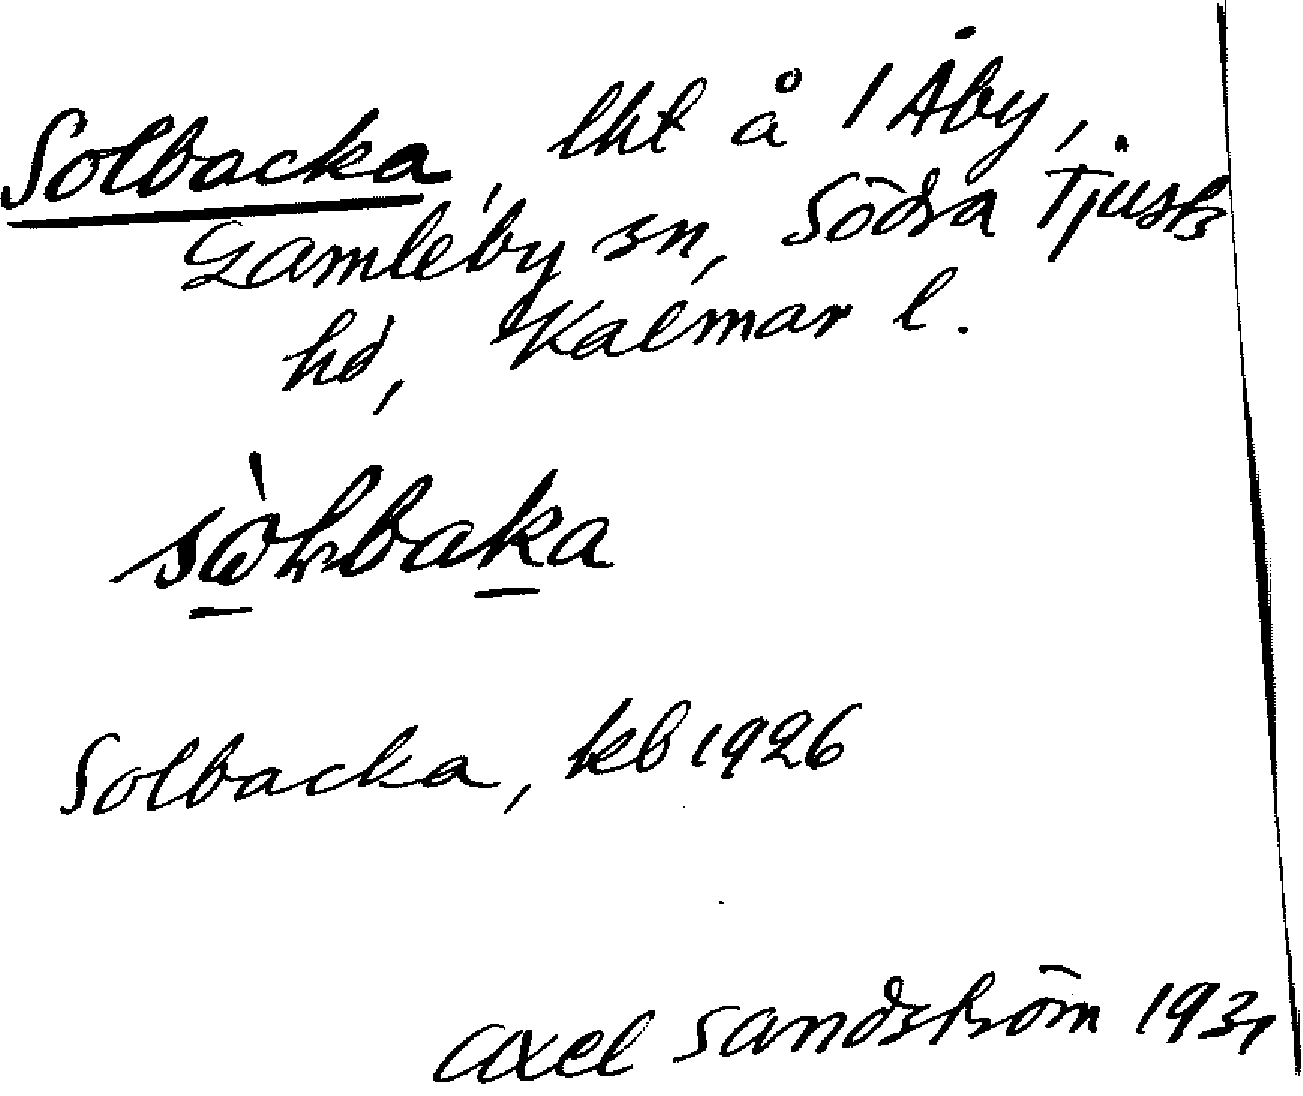 Solbacka, lht å 1 Åby,
Gamleby sn, Södra Tjusts
hd, Kalmar l.
Solbacka, kb 1926
Axel Sandström 193